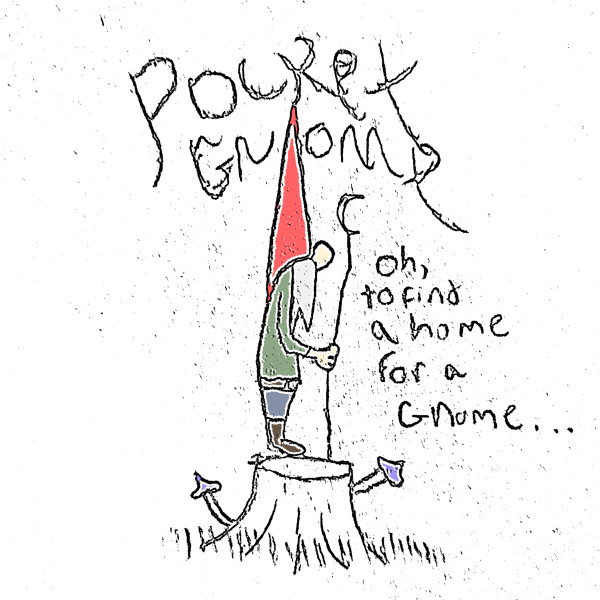 Pocket
Gnome
oh,
to find
a home
for a
Gnome...